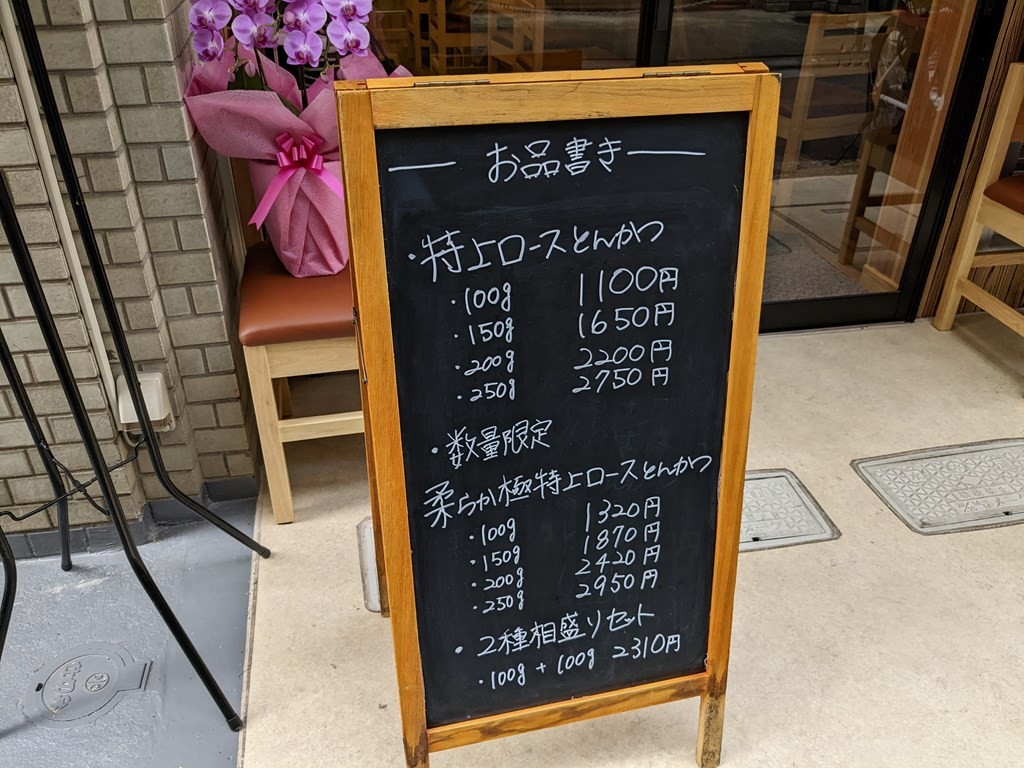 お品書き
・特上ロースとんかつ
・100g 1100円
・150g 1650円
・200g 2200円
・250g 2750円
・数量限定
柔らか極特上ロースとんかつ
・100g 1320円
・150g 1870円
・200g 2420円
・250g 2950円
・2種相盛りセット
・100g + 100g 2310円